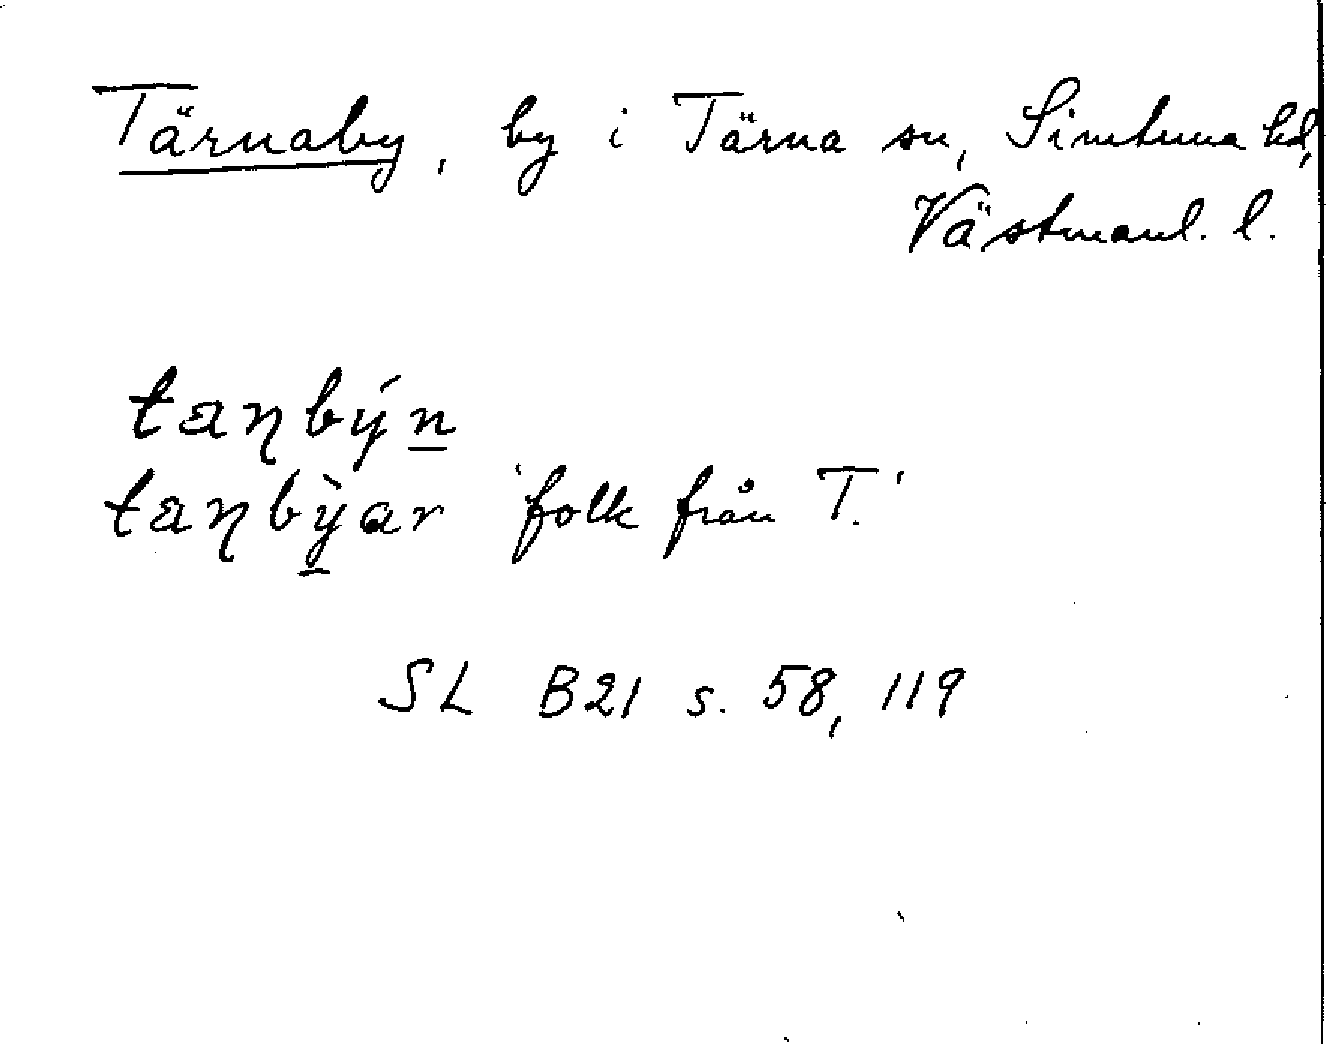 Tärnaby, by i Tärna sn, Simtuna hd,
Västmanl. l.
taɳbýn
taɳbỳar 'folk från T.'
SL B21 s. 58, 119